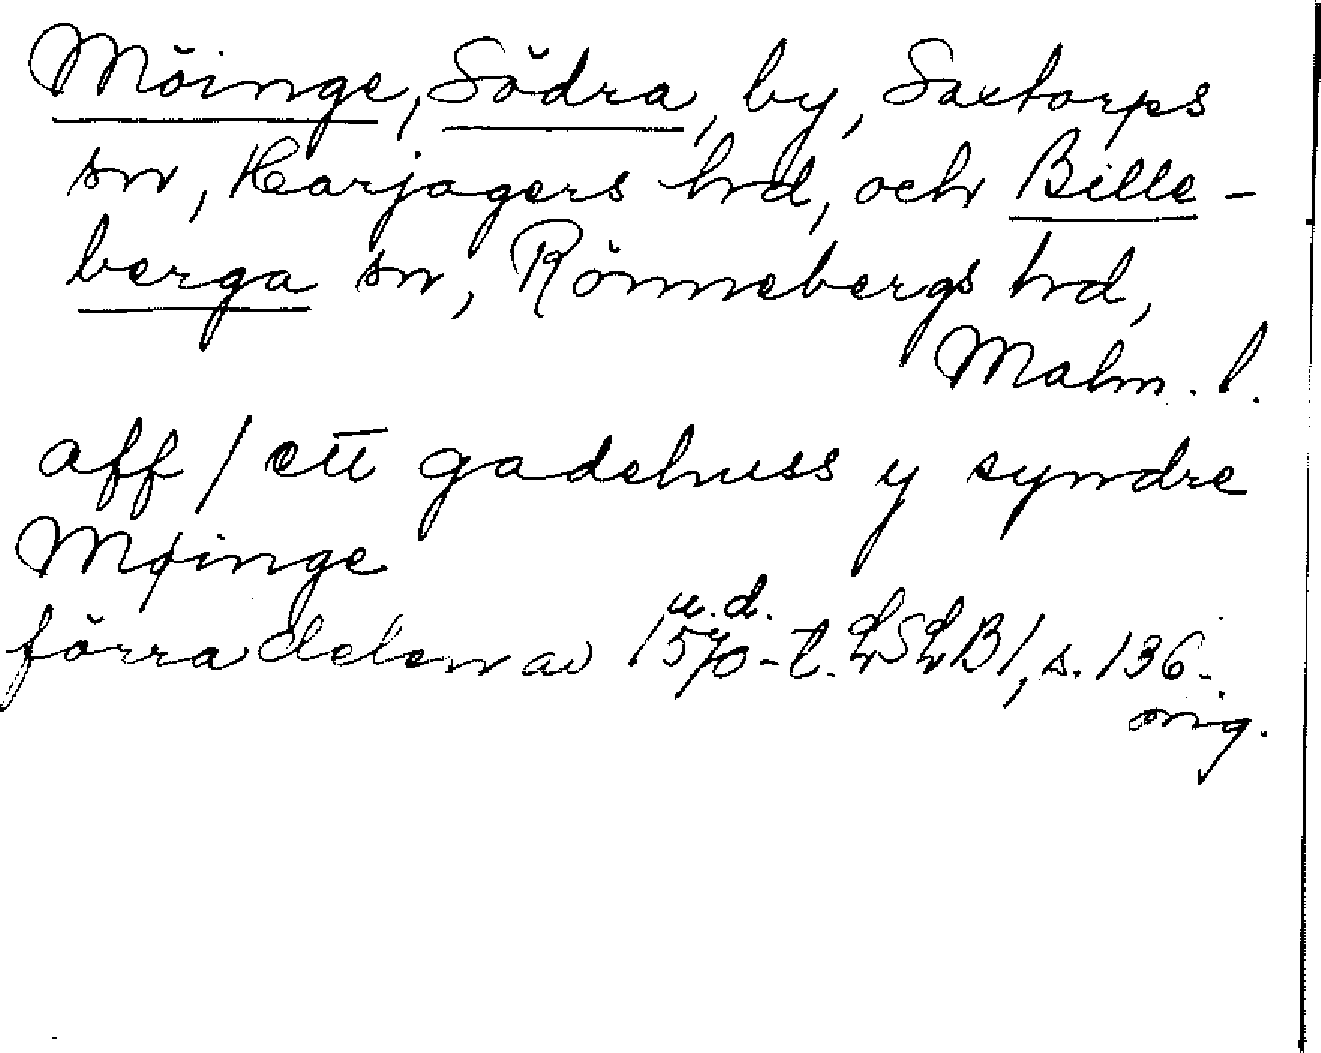 Möinge, Södra, by, Saxtorps
sn, Harjagers hrd, och Bille-
berga sn, Rönnebergs hrd,
Malm. l.
aff / ett gadehuss y syndre
Møinge
u.d.
förra delen av 1570-t. LSLB1, s. 136.
orig.